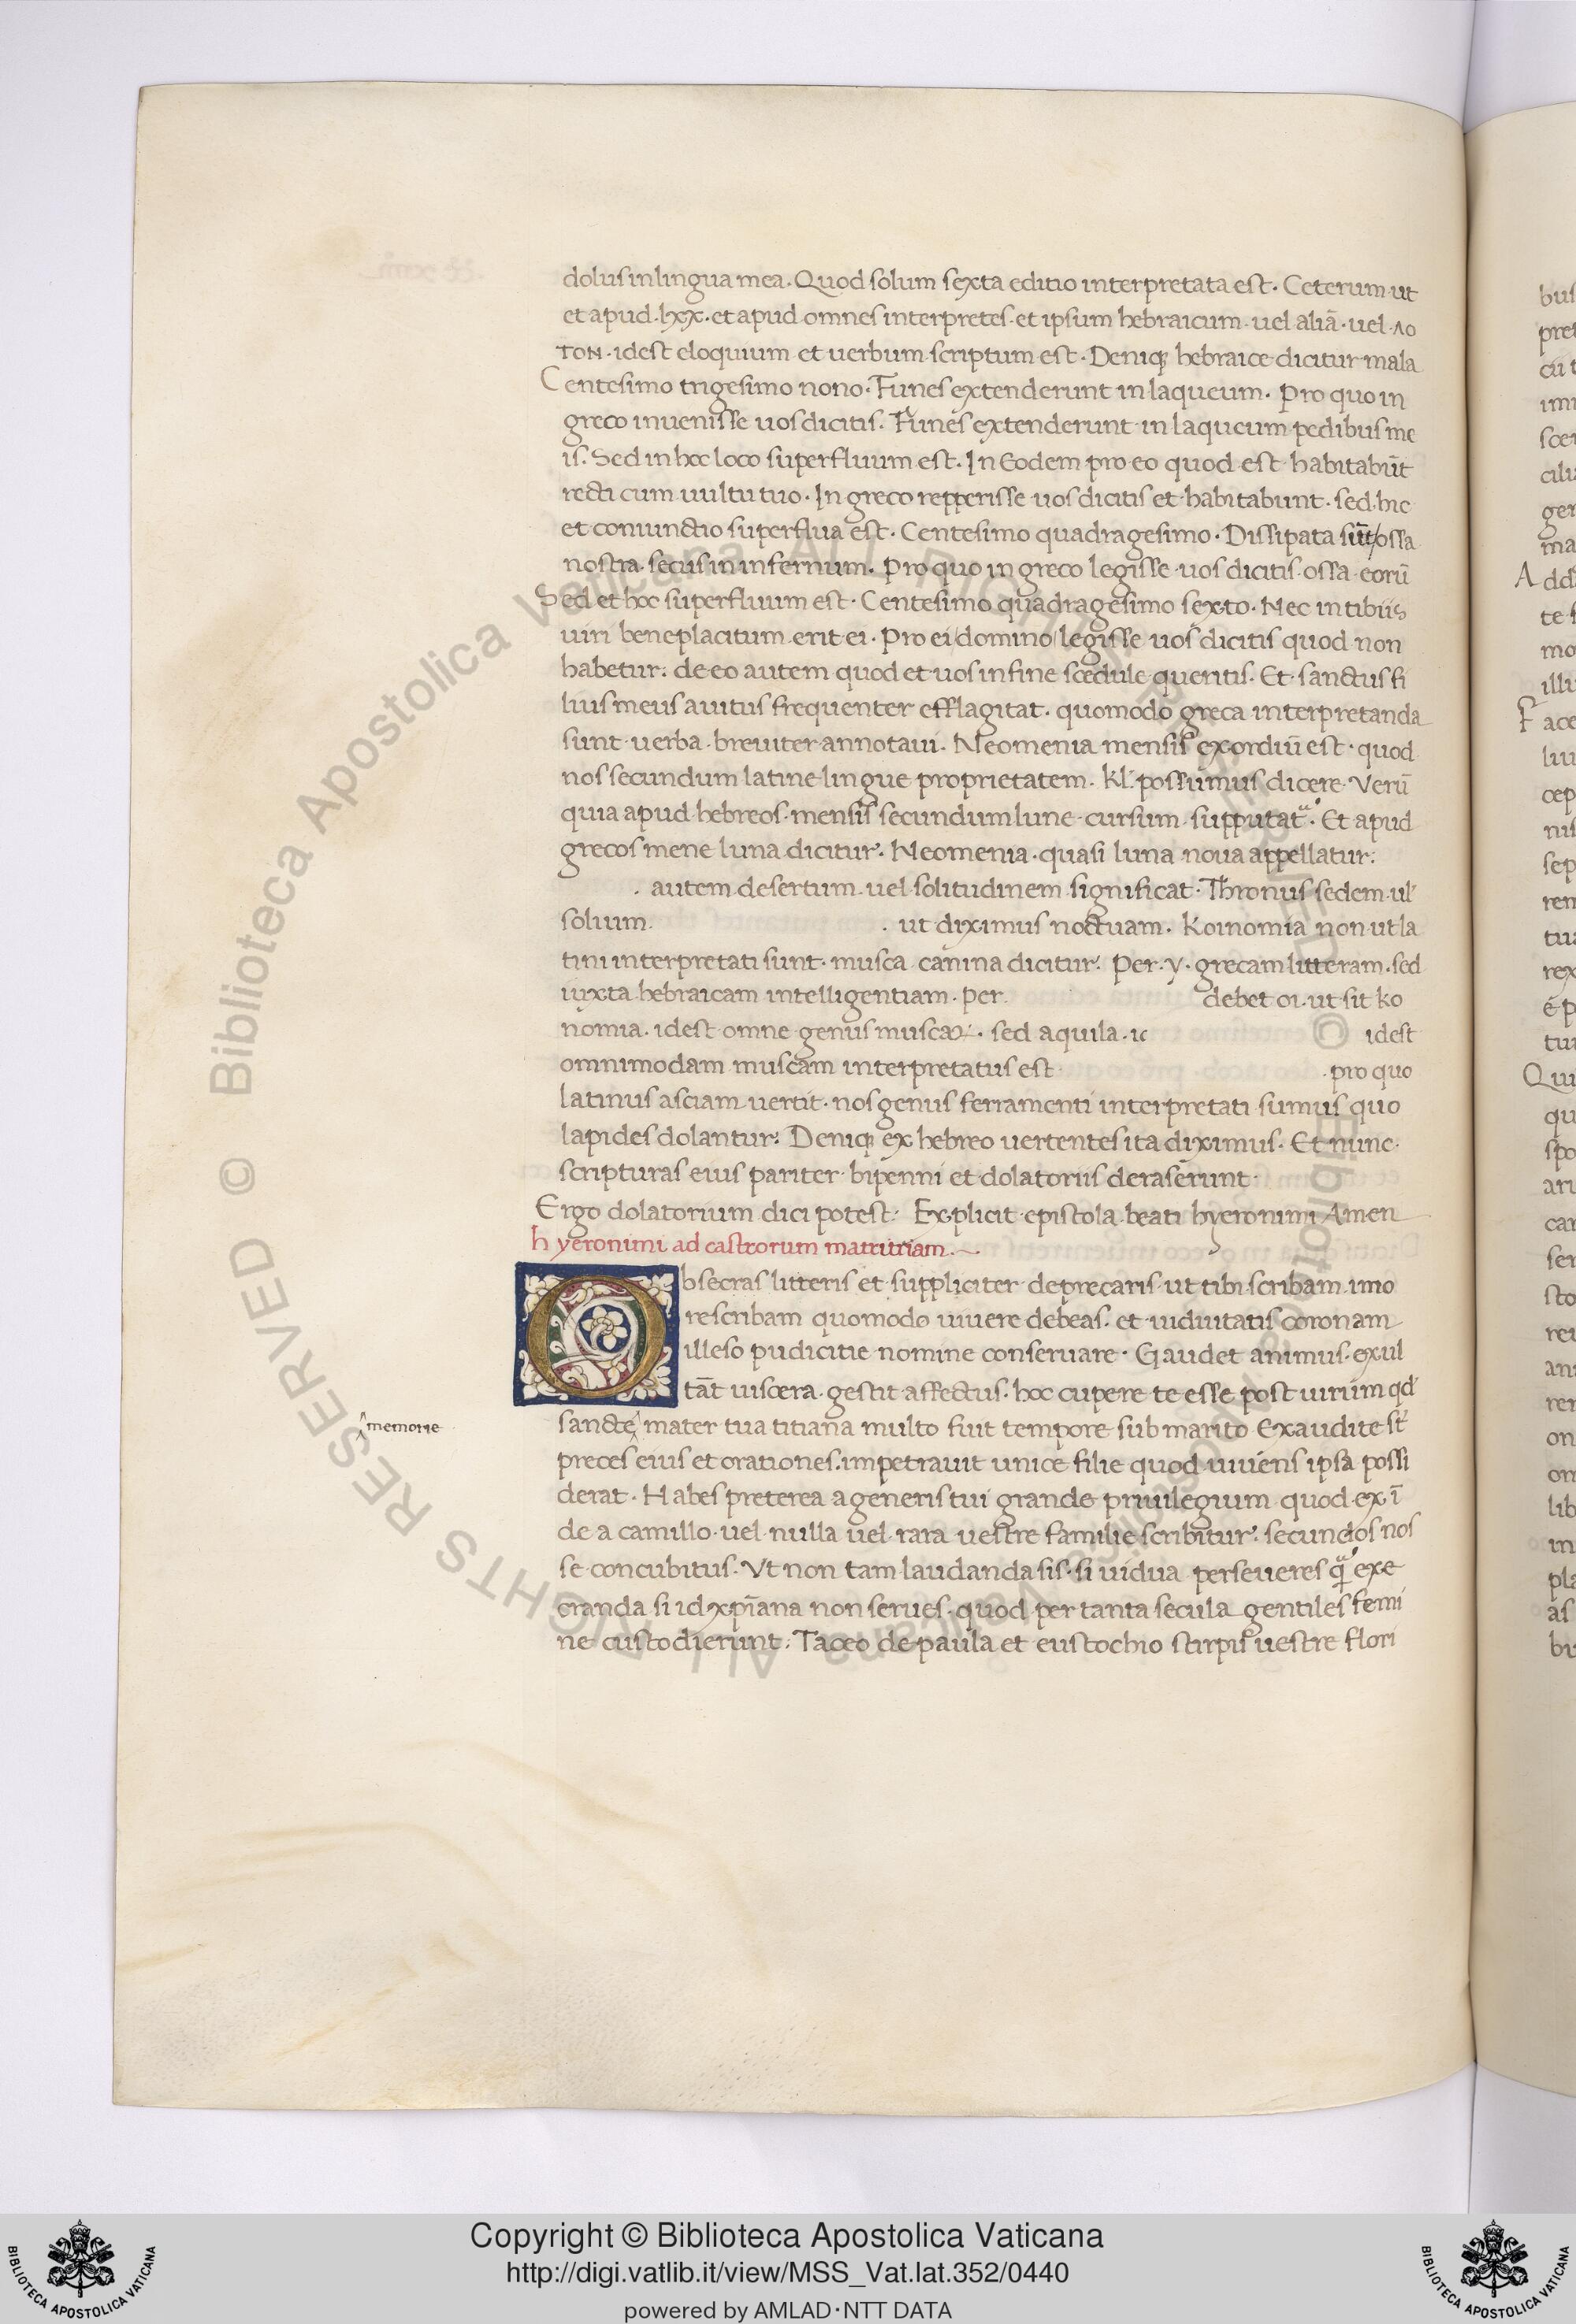 dolus in lingua mea. Quod solum sexta editio interpretata est. Ceterum ut
et apud .lxx. et apud omnes interpretes. et ipsum hebraicum. uel aliā. uel. ΛO
TON. idest eloquium et uerbum scriptum est. Deniq hebraice dicitur mala
Centesimo trigesimo nono. Funes extenderunt in laqueum. Pro quo in
greco inuenisse uos dicitis. Funes extenderunt in laqueum pedibus me
is. Sed in hoc loco superfluum est. In Eodem pro eo quod est habitabūt
recti cum uultu tuo. In greco repperisse uos dicitis et habitabunt. sed hic
et coniunctio superflua est. Centesimo quadragesimo. Dissipata sūt/ossa
nostra. secus in infernum. Pro quo in greco legisse uos dicitis. ossa eorū
Sed et hoc superfluum est. Centesimo quadragesimo sexto. Nec in tibiis
uiri beneplacitum erit ei. Pro ei/domino/legisse uos dicitis quod non
habetur: de eo autem quod et uos in fine scedule queritis. Et sanctus fi
lius meus auitus frequenter efflagitat. quomodo greca interpretanda
sunt uerba. breuiter annotaui. Neomenia mensis exordiū est. quod
nos secundum latine lingue proprietatem. kl' possumus dicere. Verū
quia apud hebreos. mensis secundum lune cursum. supputatʳ. Et apud
grecos mene luna dicitur. Neomenia. quasi luna noua appellatur:
. autem desertum uel solitudinem significat. Thronus sedem ul'
solium. . ut diximus noctuam. Koinomia non ut la
tini interpretati sunt. musca canina dicitur. Per .y. grecam litteram. sed
iuxta hebraicam intelligentiam. per debet oi. ut sit ko
nomia. idest omne genus muscaꝝ. sed aquila. ic idest
omnimodam muscam interpretatus est . pro quo
latinus asciam uertit. nos genus ferramenti interpretati sumus quo
lapides dolantur: Deniq ex hebreo uertentes ita diximus. Et nunc.
scripturas eius pariter bipenni et dolatoriis deraserunt.
Ergo dolatorium dici potest: Explicit epistola beati hyeronimi Amen
hyeronimi ad castrorum matrutriam.
Obsecras litteris et suppliciter deprecaris. ut tibi scribam. imo
rescribam quomodo uiuere debeas. et uiduitatis coronam
illeso pudicitie nomine conseruare. Gaudet animus. exul
tāt uiscera. gestit affectus. hoc cupere te esse post uirum qd'
memorie
sancte mater tua titiana multo fuit tempore sub marito Exaudite st'
preces eius et orationes. impetrauit unice filie quod uiuens ipsa possi
derat. Habes preterea a generis tui grande priuilegium quod ex ī
de a camillo. uel nulla uel rara uestre familie scribitur. secundos nos
se concubitus. Vt non tam laudanda sis. si uidua perseueres qʳ exe
cranda si id xp̄iana non serues. quod per tanta secula gentiles femi
ne custodierunt: Taceo de paula et eustochio stirpis uestre flori
bus
pret
cū t
imi
scer
cili
ger
ma
Add
te s
mo
illu
Face
liu
cep
nis
sep
rem
tua
rex
ē p
tur
Qui
qu
spo
ari
car
ser
sto
rei
ani
rer
on
om
lib
in
pla
as
bu
© Biblioteca Apostolica Vaticana ALL RIGHTS RESERVED © Biblioteca Apostolica Vaticana ALL RIGHTS RESERVED
Copyright © Biblioteca Apostolica Vaticana
http://digi.vatlib.it/view/MSS_Vat.lat.352/0440
powered by AMLAD·NTT DATA
BIBLIOTECA APOSTOLICA VATICANA
BIBLIOTECA APOSTOLICA VATICANA